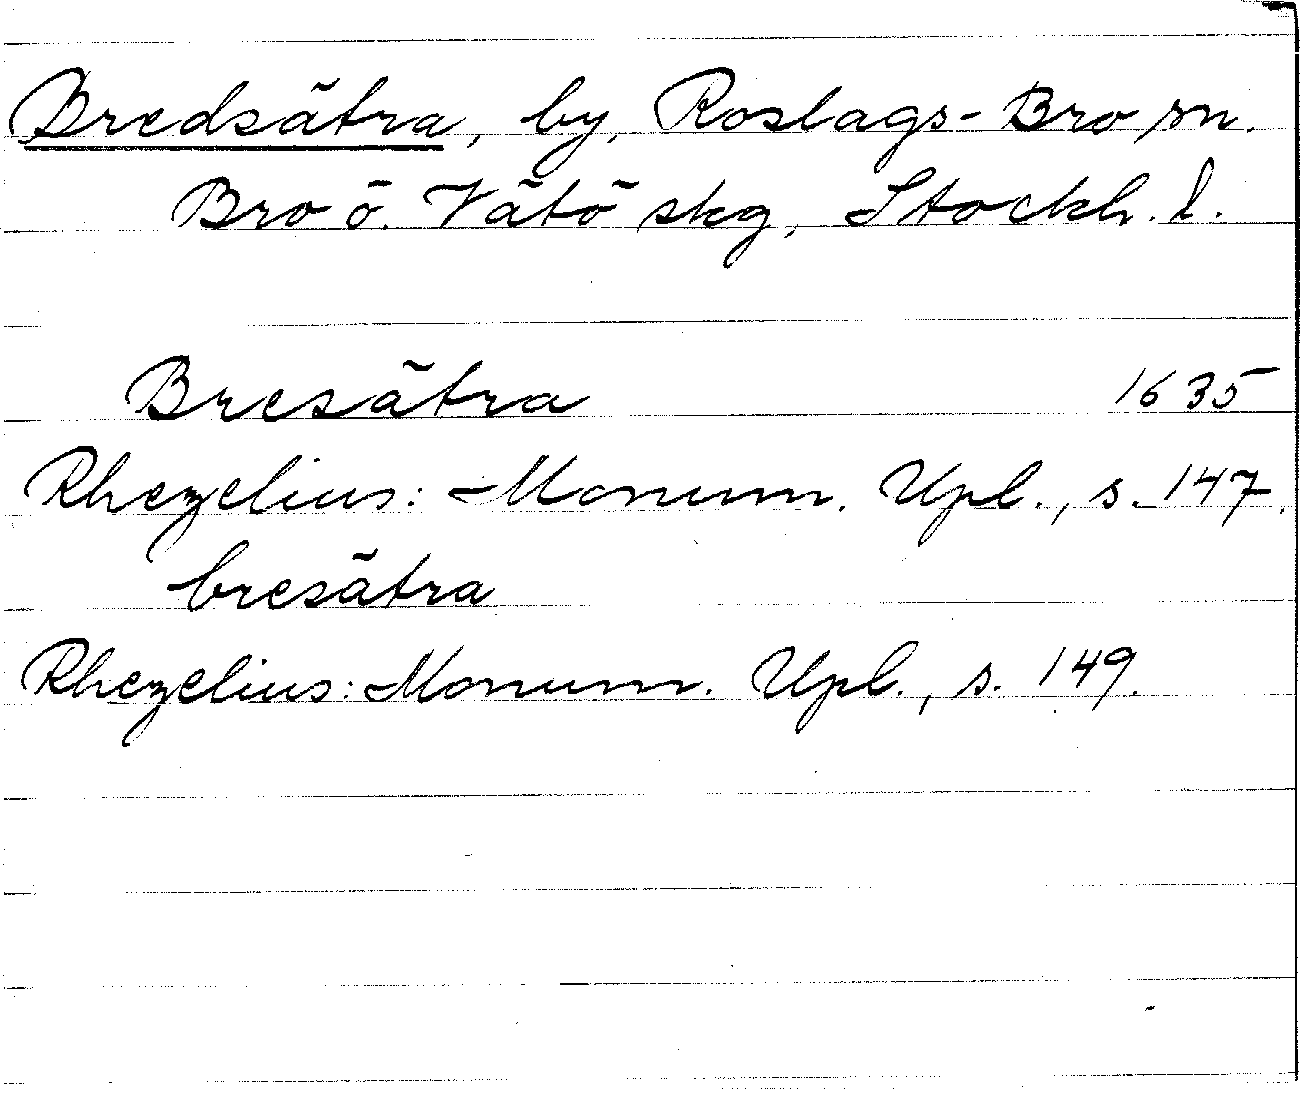 Bredsätra, by, Roslags-Bro sn.
Bro ö. Vätö skg, Stockh. l.
Bresätra 1635
Rhezelius: Monum. Upl., s. 147.
bresätra
Rhezelius: Monum. Upl., s. 149.